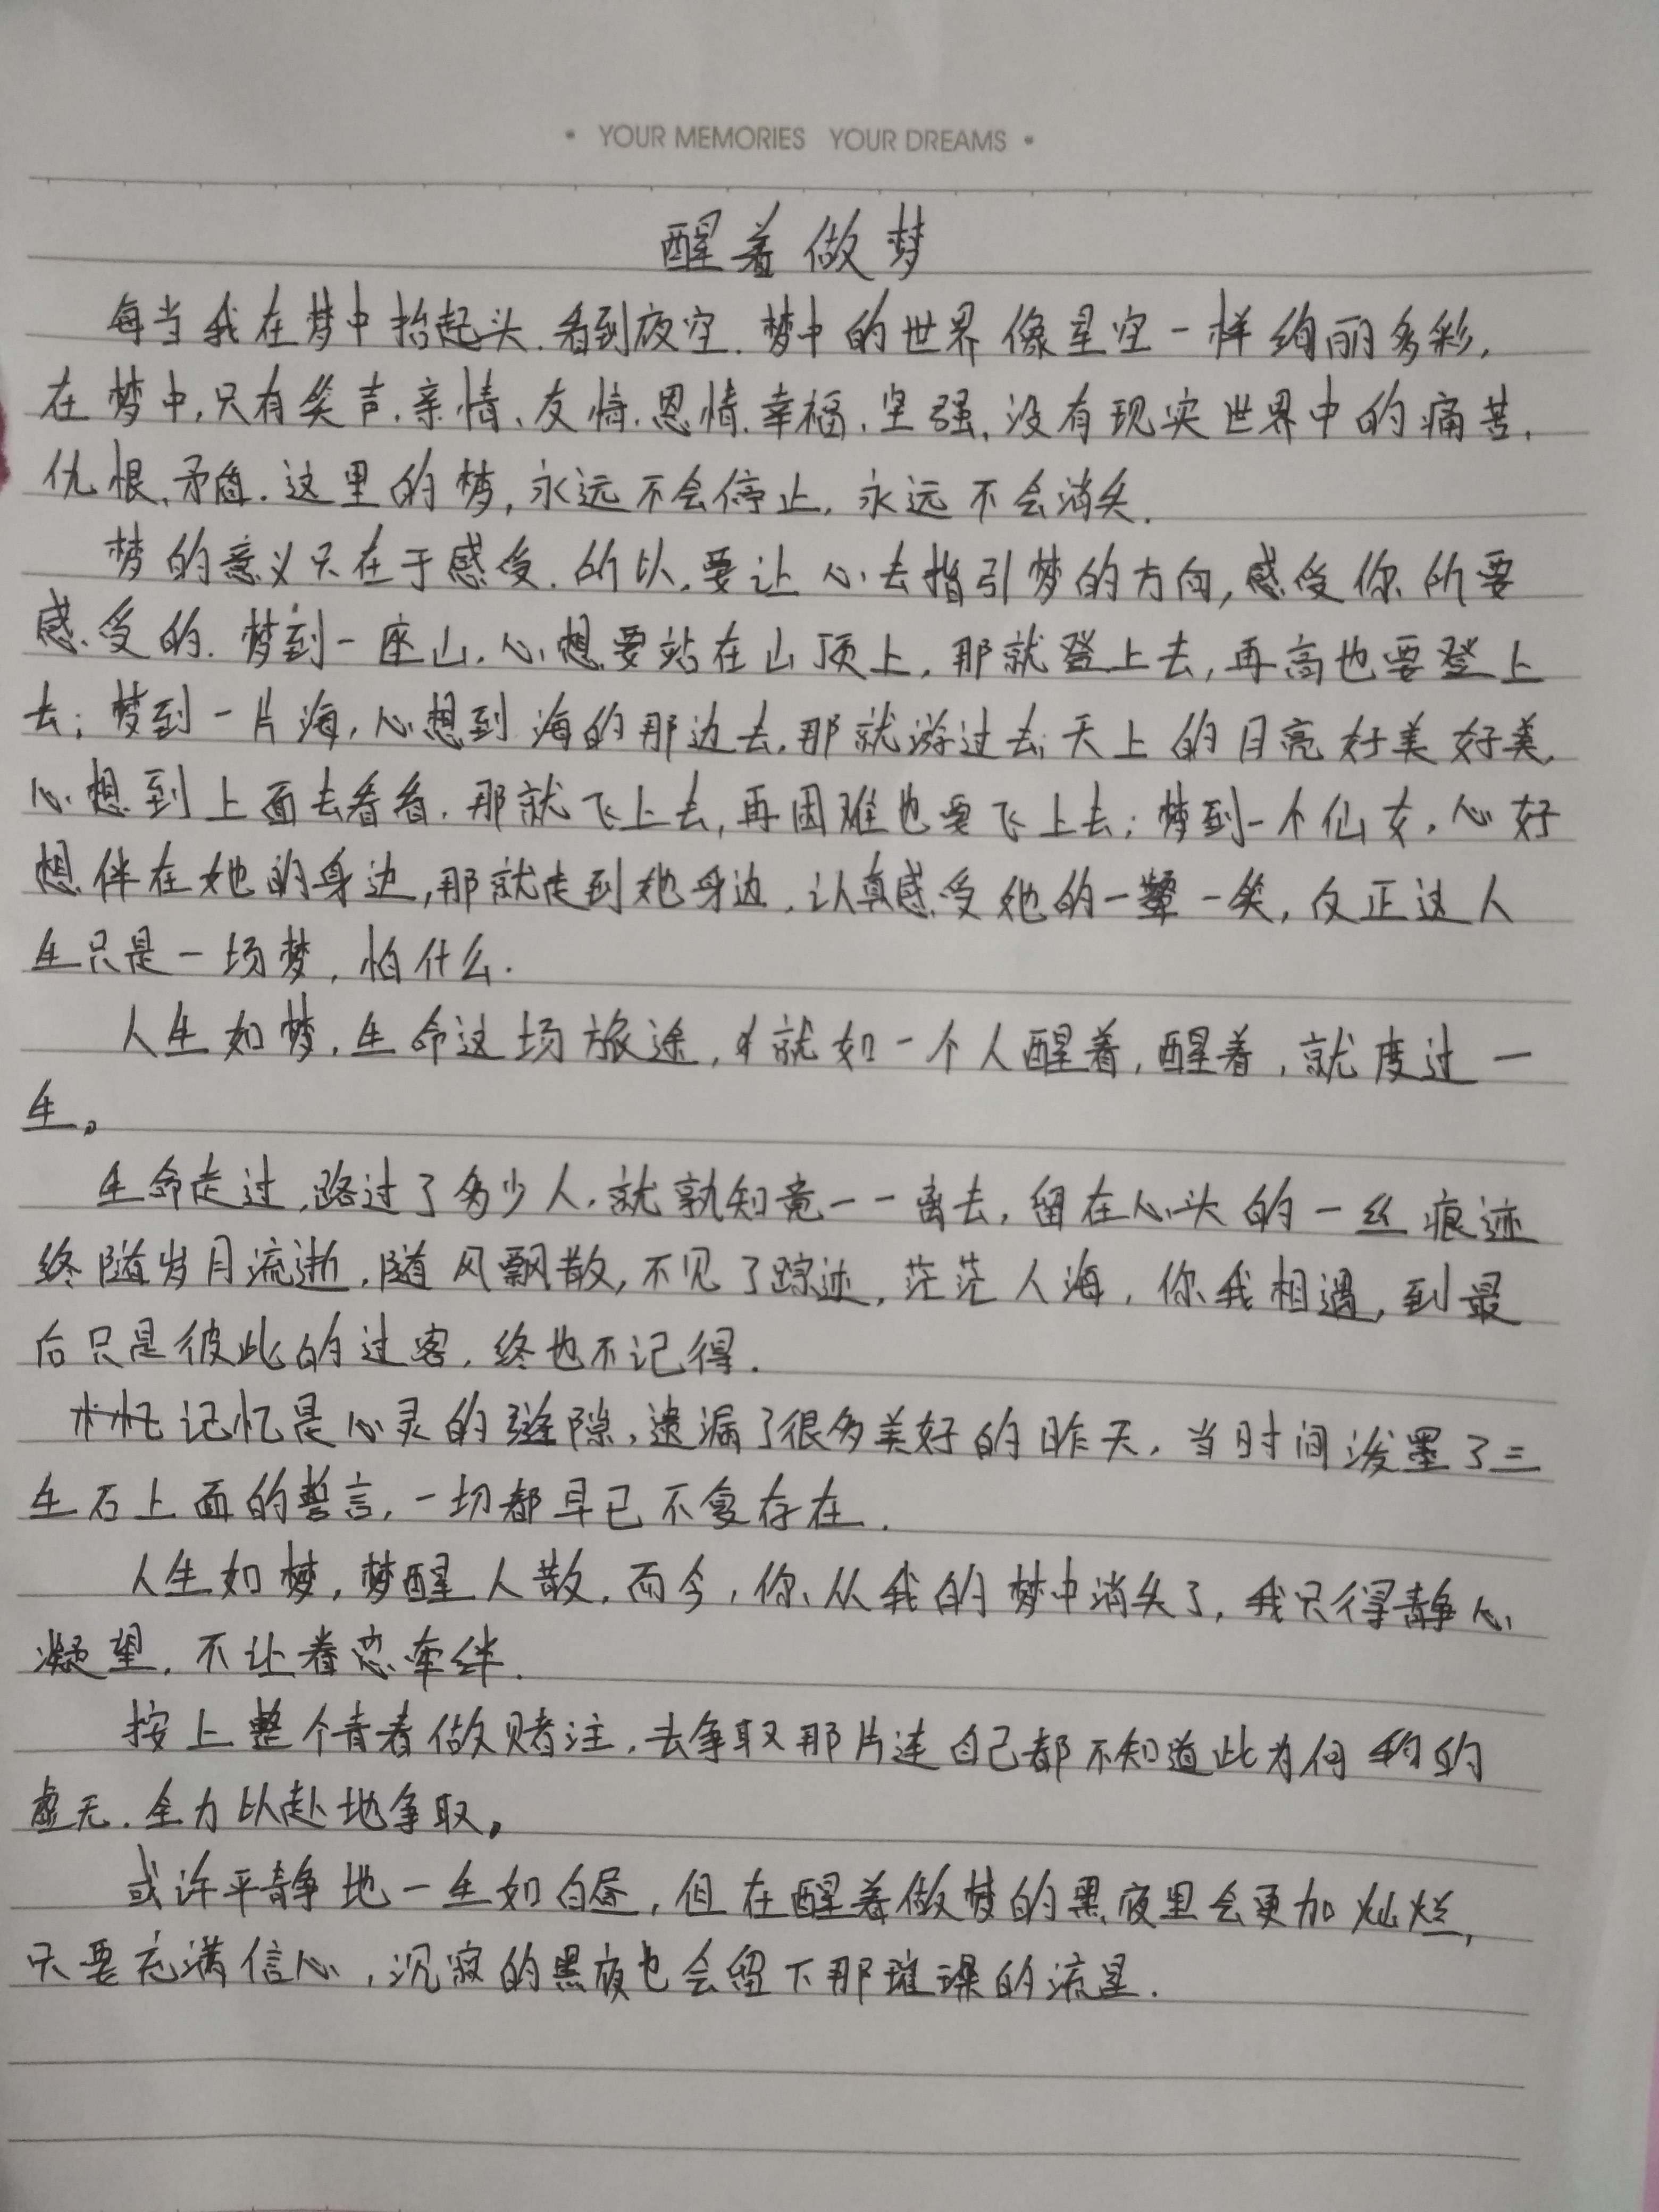 • YOUR MEMORIES YOUR DREAMS •
醒着做梦
每当我在梦中抬起头.看到夜空.梦中的世界像星空一样绚丽多彩,
在梦中,只有笑声、亲情、友情、恩情、幸福、坚强,没有现实世界中的痛苦、
仇恨、矛盾.这里的梦,永远不会停止,永远不会消失.
梦的意义只在于感受.所以,要让心去指引梦的方向,感受你所要
感受的.梦到一座山,心想要站在山顶上,那就登上去,再高也要登上
去;梦到一片海,心想到海的那边去,那就游过去;天上的月亮好美好美,
心想到上面去看看,那就飞上去,再困难也要飞上去;梦到一个仙女,心好
想伴在她的身边,那就走到她身边,认真感受她的一颦一笑,反正这人
生只是一场梦,怕什么.
人生如梦,生命这场旅途,就如一个人醒着,醒着,就度过一
生。
生命走过,路过了多少人,就孰知竟一一离去,留在心头的一丝痕迹
终随岁月流逝,随风飘散,不见了踪迹,茫茫人海,你我相遇,到最
后只是彼此的过客,终也不记得.
记忆是心灵的缝隙,遗漏了很多美好的昨天,当时间泼墨了三
生石上面的誓言,一切都早已不复存在.
人生如梦,梦醒人散,而今,你从我的梦中消失了,我只得静心
凝望,不让眷恋牵绊.
按上整个青春做赌注,去争取那片连自己都不知道此为何物的
虚无.全力以赴地争取。
或许平静地一生如白昼,但在醒着做梦的黑夜里会更加灿烂,
只要充满信心,沉寂的黑夜也会留下那璀璨的流星.